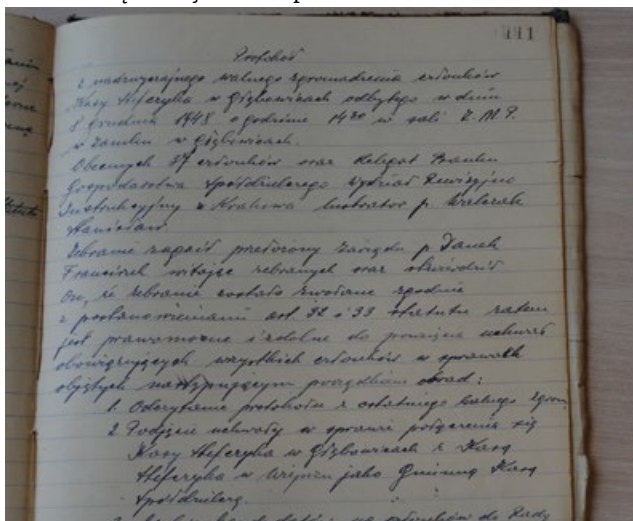 111
Protokół
z nadzwyczajnego walnego zgromadzenia członków
Kasy Stefczyka w Głębowicach odbytego w dniu
8 grudnia 1948 o godzinie 14³⁰ w sali Z.M.P.
w zamku w Głębowicach.
Obecnych 57 członków oraz delegat Banku
Gospodarstwa Spółdzielczego Wydział Rewizyjno
Instrukcyjny w Krakowie lustrator p. Walczak
Stanisław
Zebranie zagaił przełożony zarządu p. Janek
Franciszek witając zebranych oraz stwierdził
On, że zebranie zostało zwołane zgodnie
z postanowieniami art 32 i 33 statutu zatem
jest prawomocne i zdolne do powzięcia uchwał
obowiązujących wszystkich członków w sprawach
objętych następującym porządkiem obrad:
1. Odczytanie protokołu z ostatniego walnego zgrom.
2. Podjęcie uchwały w sprawie połączenia się
Kasy Stefczyka w Głębowicach z Kasą
Stefczyka w Wieprzu jako Gminną Kasą
Spółdzielczą.
członków do Rady